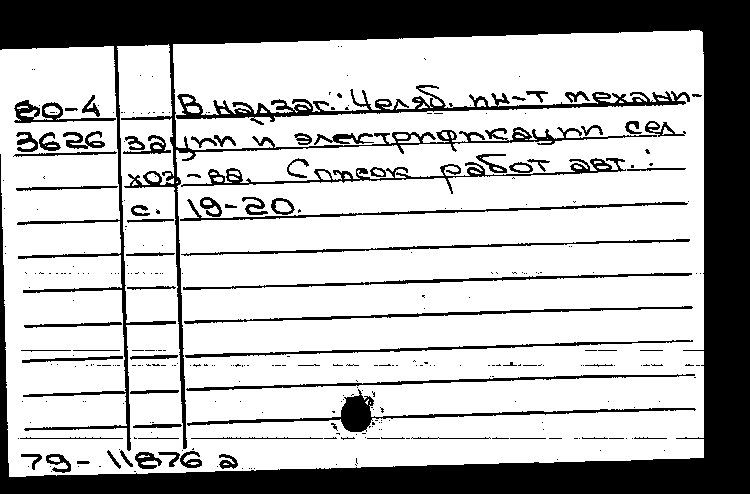 80-4 В надзаг.: Челяб. ин-т механи-
3626 зации и электрификации сел.
хоз-ва. Список работ авт.:
с. 19-20.
79-11876а